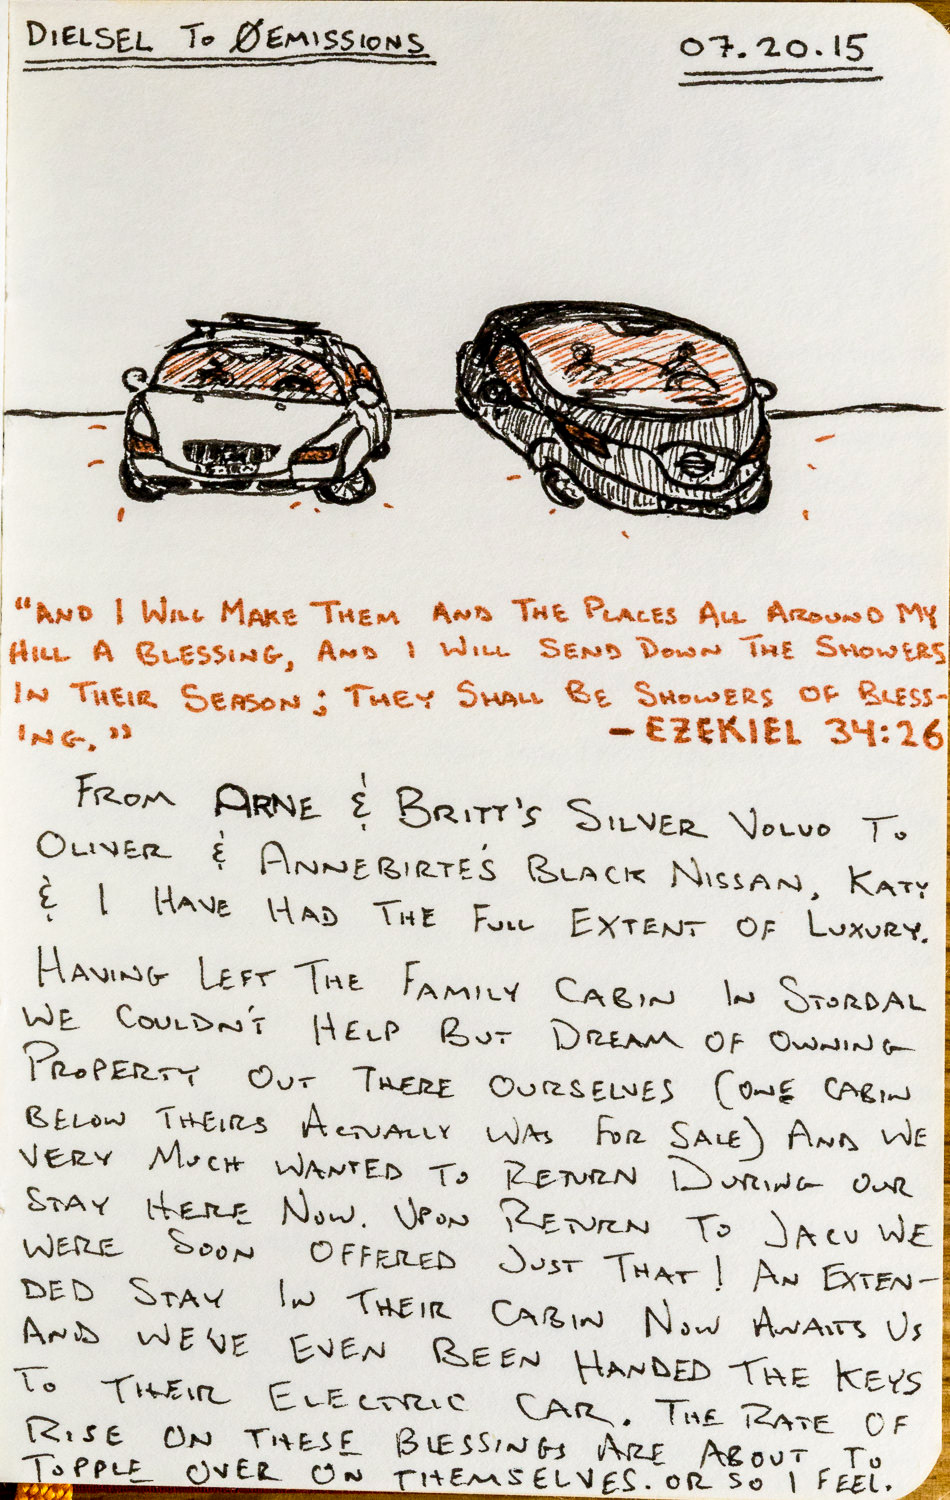 DIELSEL TO ØEMISSIONS
07.20.15
"AND I WILL MAKE THEM AND THE PLACES ALL AROUND MY
HILL A BLESSING, AND I WILL SEND DOWN THE SHOWERS
IN THEIR SEASON; THEY SHALL BE SHOWERS OF BLESS-
ING."
– EZEKIEL 34:26
FROM ARNE & BRITT'S SILVER VOLVO TO
OLIVER & ANNEBIRTE'S BLACK NISSAN, KATY
& I HAVE HAD THE FULL EXTENT OF LUXURY.
HAVING LEFT THE FAMILY CABIN IN STORDAL
WE COULDN'T HELP BUT DREAM OF OWNING
PROPERTY OUT THERE OURSELVES (ONE CABIN
BELOW THEIRS ACTUALLY WAS FOR SALE) AND WE
VERY MUCH WANTED TO RETURN DURING OUR
STAY HERE NOW. UPON RETURN TO JACU WE
WERE SOON OFFERED JUST THAT! AN EXTEN-
DED STAY IN THEIR CABIN NOW AWAITS US
AND WE'VE EVEN BEEN HANDED THE KEYS
TO THEIR ELECTRIC CAR. THE RATE OF
RISE ON THESE BLESSINGS ARE ABOUT TO
TOPPLE OVER ON THEMSELVES. OR SO I FEEL.